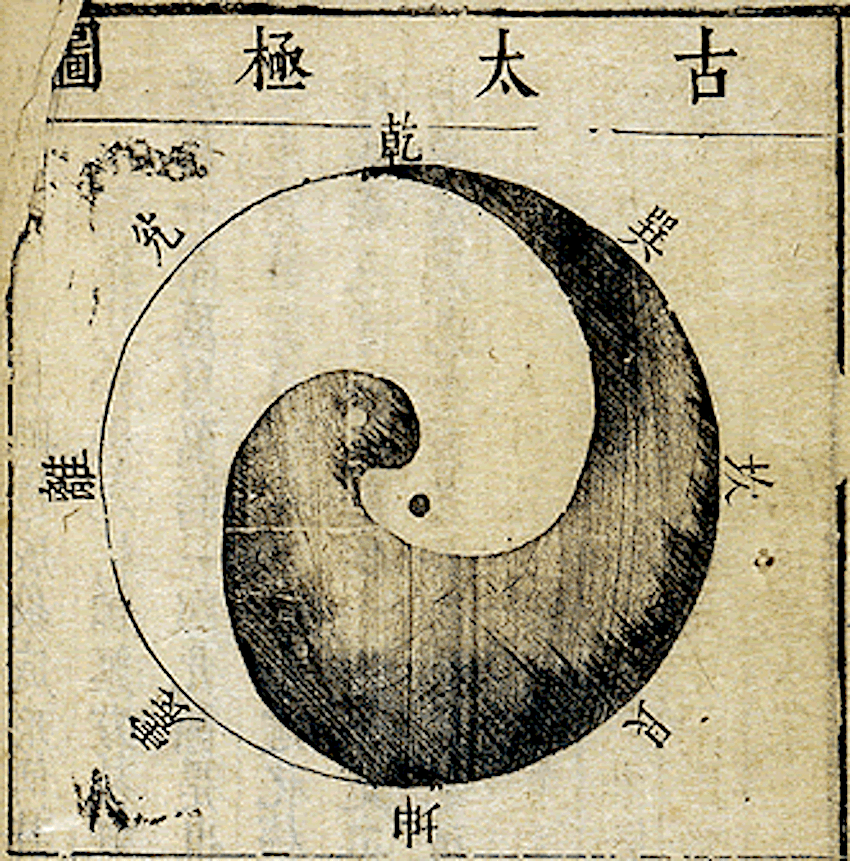 古太極圖
乾
兊
巽
離
坎
震
艮
坤